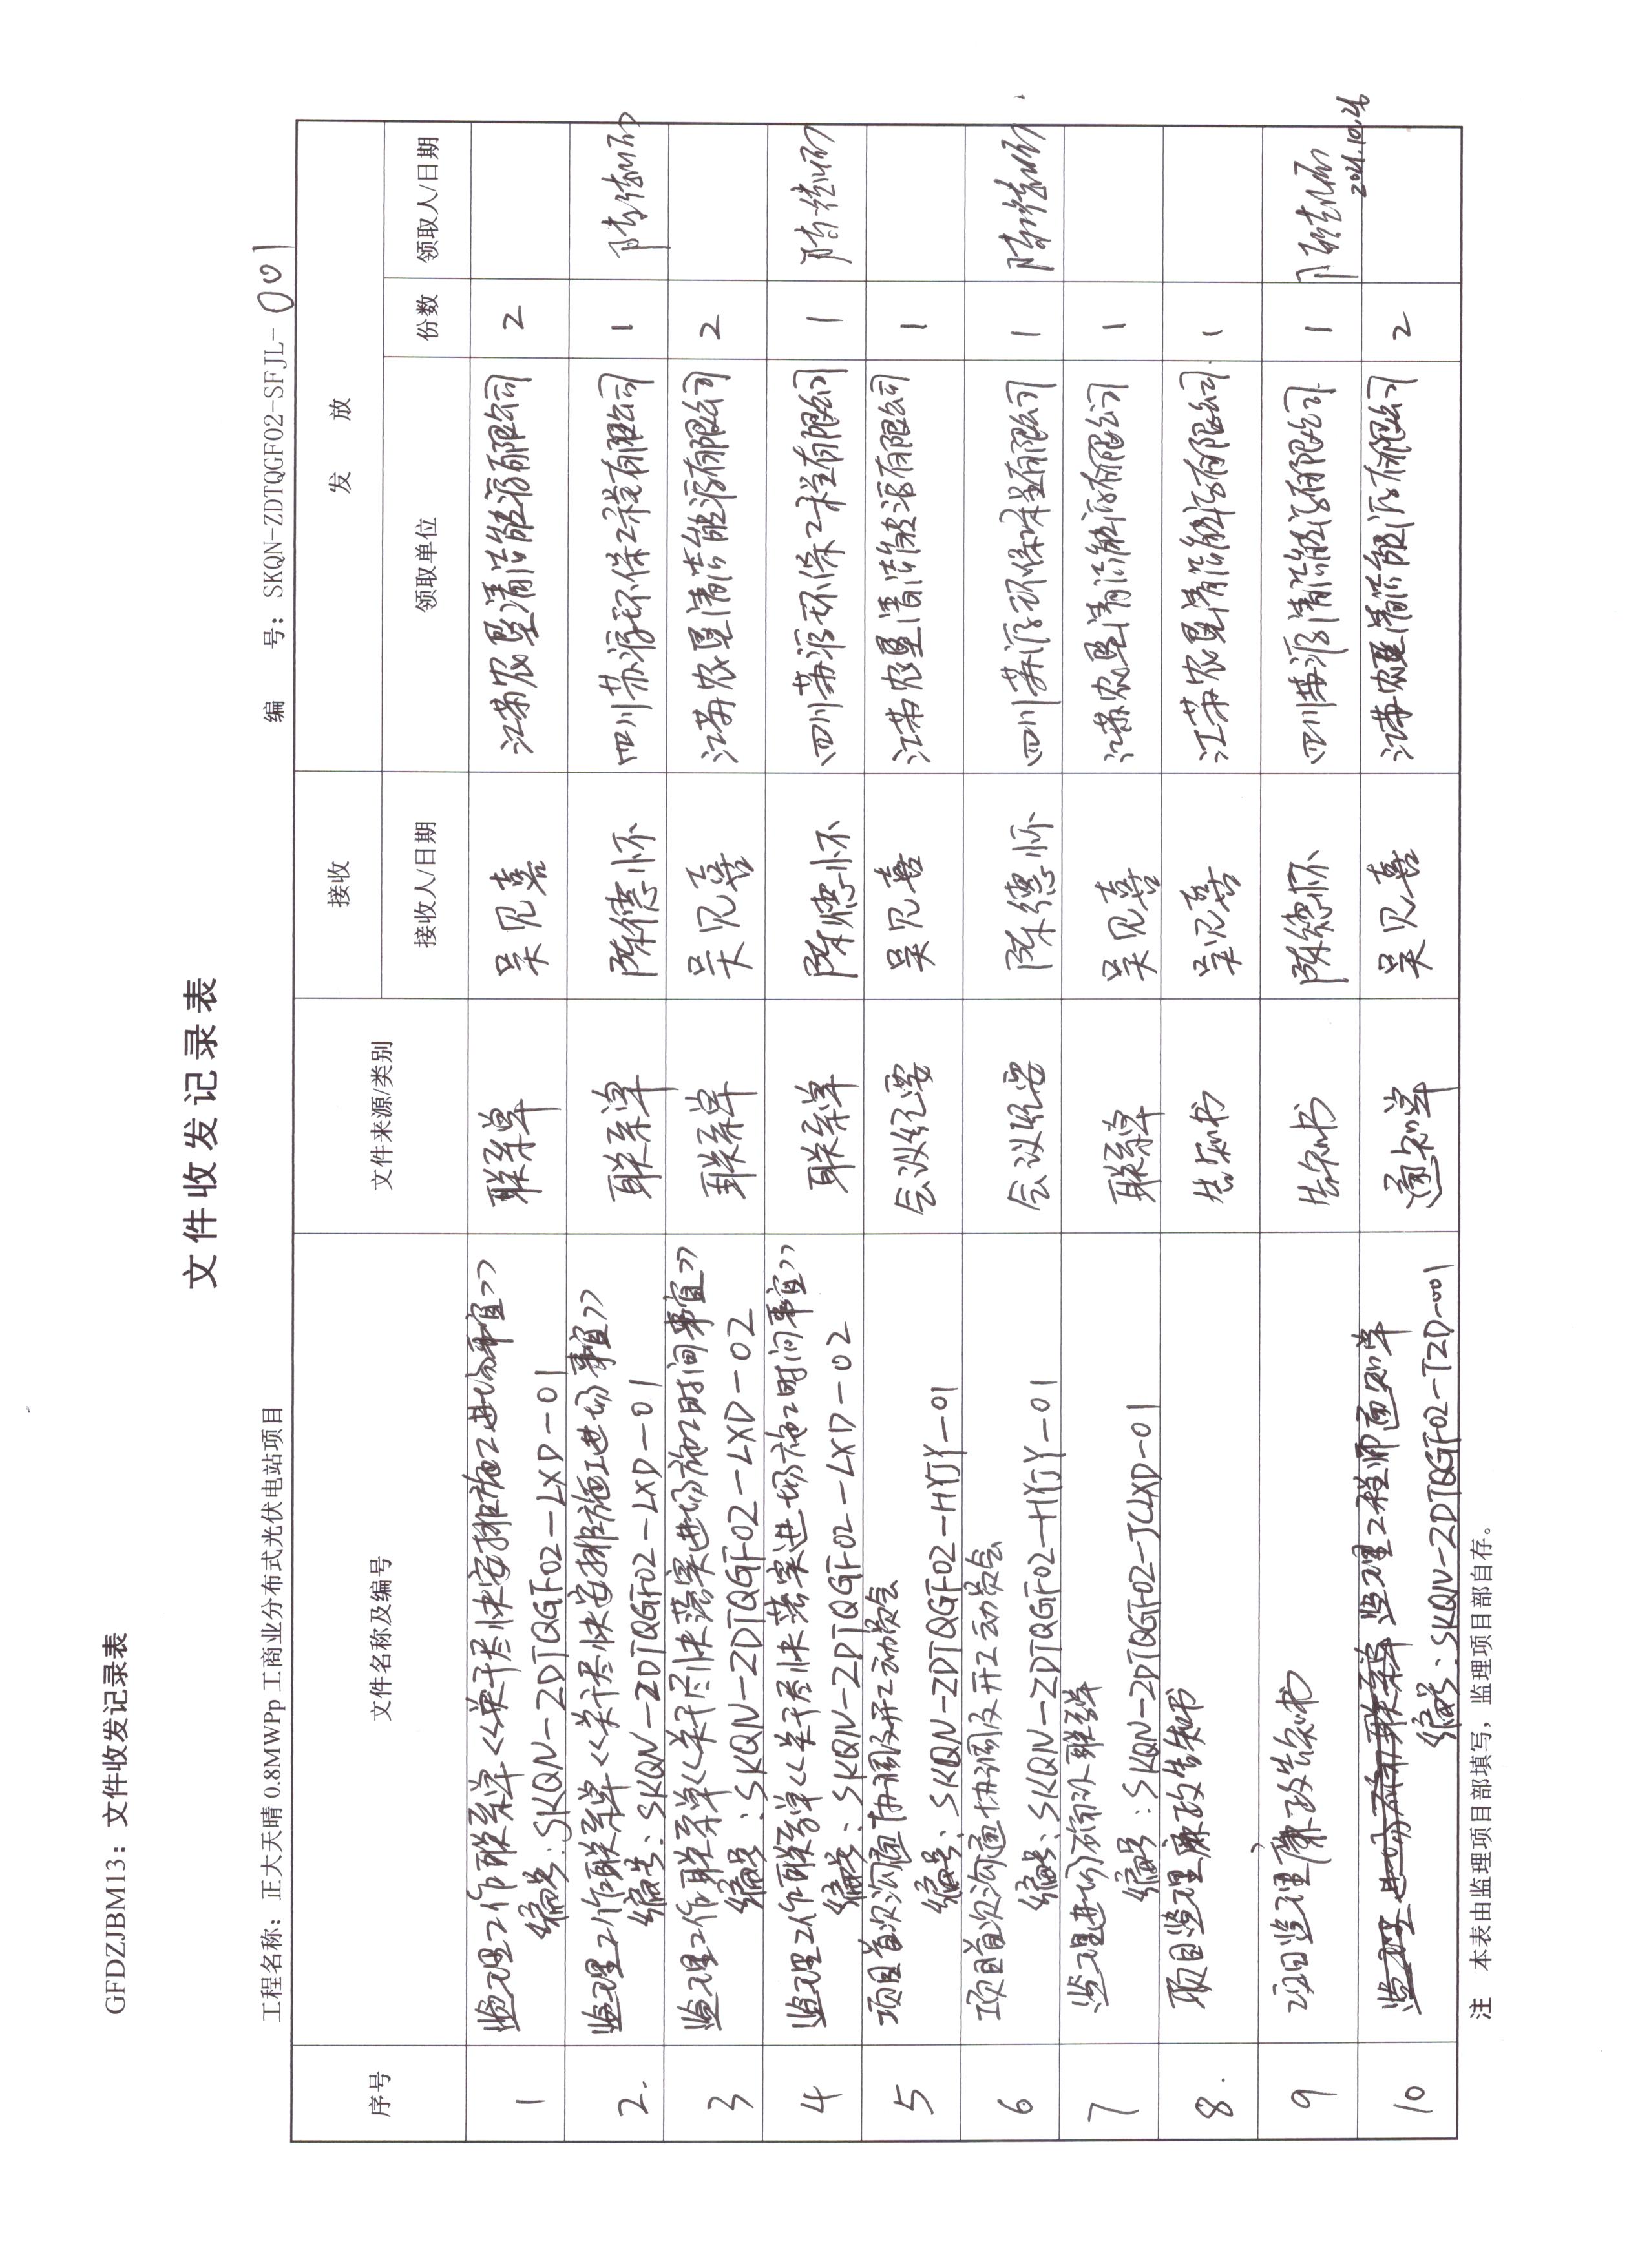 GFDZJBM13：文件收发记录表
文件收发记录表
工程名称：正大天晴 0.8MWPp 工商业分布式光伏电站项目
编 号：SKQN-ZDTQGF02-SFJL-001
序号
文件名称及编号
文件来源/类别
接收
发 放
接收人/日期
领取单位
份数
领取人/日期
1
监理工作联系单<<关于尽快安排施工进场事宜>>
编号：SKQN-ZDTQGF02-LXD-01
联系单
吴见喜
江苏农垦清洁能源有限公司
2
2.
监理工作联系单<<关于尽快安排施工进场事宜>>
编号：SKQN-ZDTQGF02-LXD-01
联系单
陈德怀
四川苏源环保工程有限公司
1
3
监理工作联系单<<关于尽快落实进场施工时间事宜>>
编号：SKQN-ZDTQGF02-LXD-02
联系单
吴见喜
江苏农垦清洁能源有限公司
2
4
监理工作联系单<<关于尽快落实进场施工时间事宜>>
编号：SKQN-ZDTQGF02-LXD-02
联系单
陈德怀
四川苏源环保工程有限公司
1
5
项目首次沟通协调及开工动员会
编号：SKQN-ZDTQGF02-HYJY-01
会议纪要
吴见喜
江苏农垦清洁能源有限公司
1
6
项目首次沟通协调及开工动员会
编号：SKQN-ZDTQGF02-HYJY-01
会议纪要
陈德怀
四川苏源环保工程有限公司
1
7
监理进场确认联系单
编号：SKQN-ZDTQGF02-JCLXD-01
联系单
吴见喜
江苏农垦清洁能源有限公司
1
8.
项目监理廉政告知书
告知书
吴见喜
江苏农垦清洁能源有限公司
1
9
项目监理廉政告知书
告知书
陈德怀
四川苏源清洁能源有限公司
1
2021.10.26
10
监理工程师通知单
编号：SKQN-ZDTQGF02-TZD-001
通知单
吴见喜
江苏农垦清洁能源有限公司
2
注 本表由监理项目部填写，监理项目部自存。